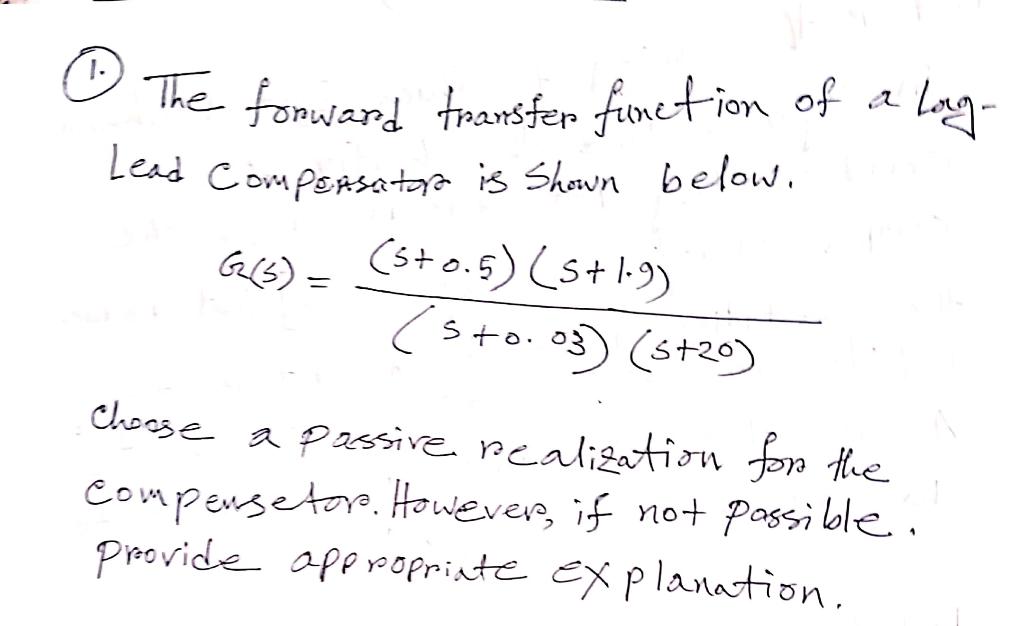 1. The forward transfer function of a Lag-
Lead Compensator is Shown below.
G(s) = (s+0.5) (s+1.9)
(s+0.03) (s+20)
Choose a passive realization for the
compensetor. However, if not possible.
provide appropriate explanation.